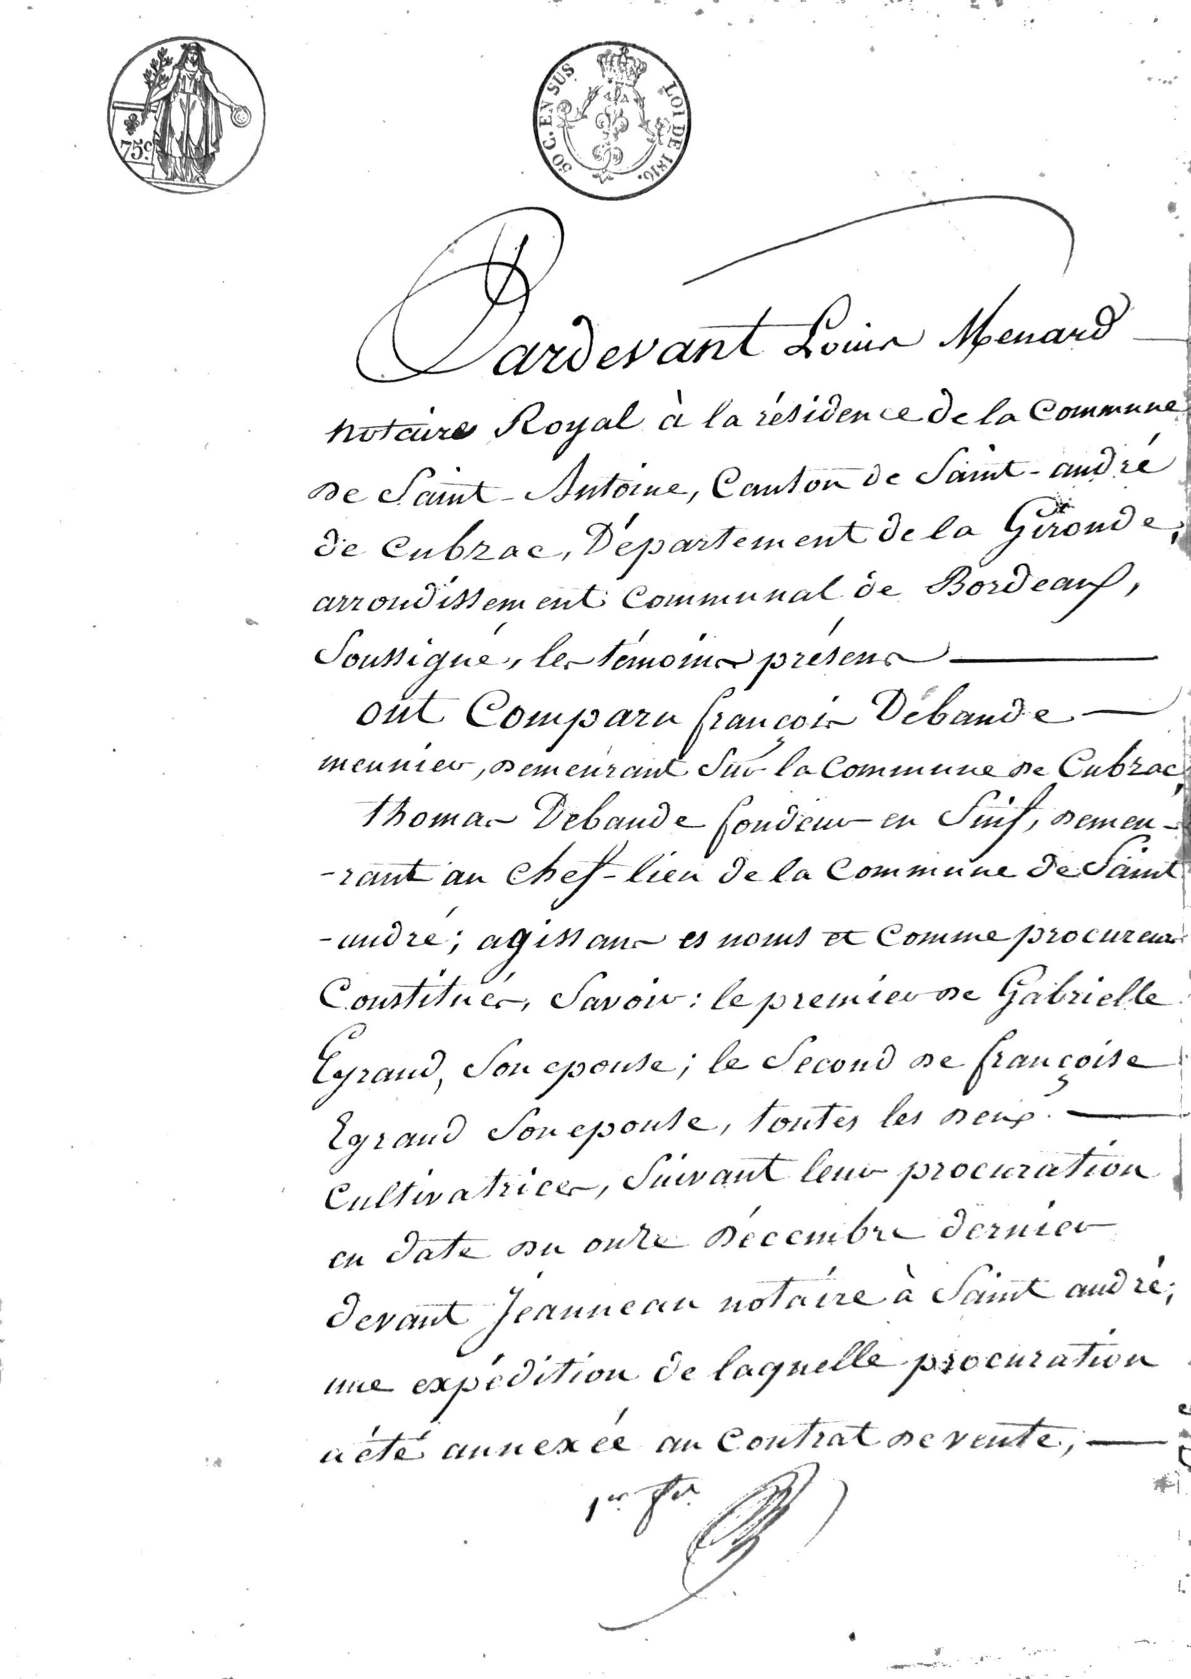 75c.
50 C. EN SUS. LOI DE 1816.
Pardevant Louis Menard
notaire Royal à la résidence de la Commune
de Saint-Antoine, Canton de Saint-andré
de Cubzac, Département de la Gironde,
arrondissement Communal de Bordeaux,
Soussigné, les témoins présens
ont Comparu françois Debande
meunier, demeurant sur la Commune de Cubzac,
thomas Debande fondeur en Suif, demeu-
-rant au chef-lieu de la Commune de Saint
-andré; agissans es noms et comme procureurs
Constitués, Savoir: le premier de Gabrielle
Eyraud, son epouse; le Second de françoise
Eyraud son epouse, toutes les deux
Cultivatrices, Suivant leur procuration
en date du onze décembre dernier
devant Jeanneau notaire à Saint andré;
une expédition de laquelle procuration
a été annexée au contrat de vente,
1er